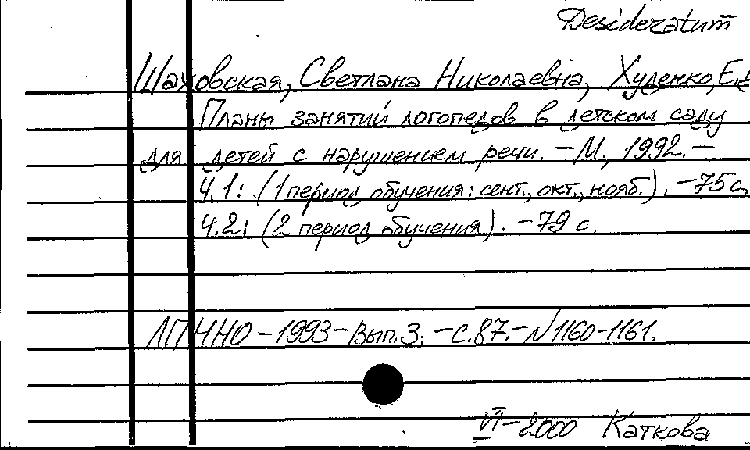 Desideratum
Шаховская, Светлана Николаевна, Худенко, Е.Д.
Планы занятий логопедов в детском саду
для детей с нарушением речи. – М., 1992. –
Ч.1: (1 период обучения: сент., окт., нояб.). – 75 с.
Ч.2: (2 период обучения). – 79 с.
ЛПЧНО – 1993 – Вып. 3. – С. 87. – N 1160-1161.
VI – 2000 Каткова